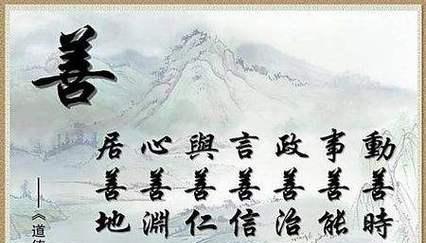 善
居善地
心善淵
與善仁
言善信
政善治
事善能
動善時
——《道德